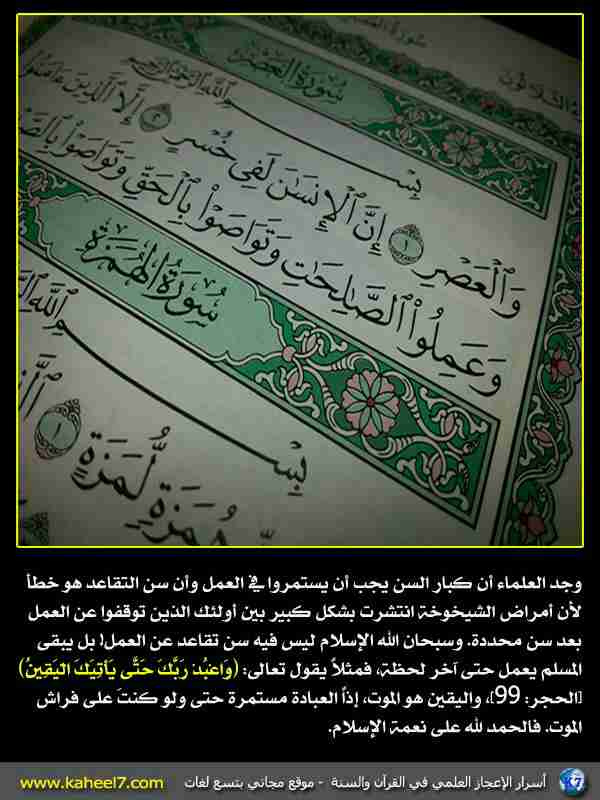 سورة العصر
بِسْمِ ٱللَّهِ ٱلرَّحْمَٰنِ ٱلرَّحِيمِ
وَٱلْعَصْرِ ١ إِنَّ ٱلْإِنسَٰنَ لَفِى خُسْرٍ ٢ إِلَّا ٱلَّذِينَ ءَامَنُوا۟
وَعَمِلُوا۟ ٱلصَّٰلِحَٰتِ وَتَوَاصَوْا۟ بِٱلْحَقِّ وَتَوَاصَوْا۟
سُورَةُ الهُمَزَةِ
بِسْمِ ٱللَّهِ
هُمَزَةٍ لُّمَزَةٍ ١
وجد العلماء أن كبار السن يجب أن يستمروا في العمل وأن سن التقاعد هو خطأ
لأن أمراض الشيخوخة انتشرت بشكل كبير بين أولئك الذين توقفوا عن العمل
بعد سن محددة. وسبحان الله الإسلام ليس فيه سن تقاعد عن العمل! بل يبقى
المسلم يعمل حتى آخر لحظة، فمثلاً يقول تعالى: (وَاعْبُدْ رَبَّكَ حَتَّى يَأْتِيَكَ الْيَقِينُ)
[الحجر: 99]، واليقين هو الموت، إذاً العبادة مستمرة حتى ولو كنتَ على فراش
الموت. فالحمد لله على نعمة الإسلام.
www.kaheel7.com أسرار الإعجاز العلمي في القرآن والسنة - موقع مجاني بتسع لغات K7